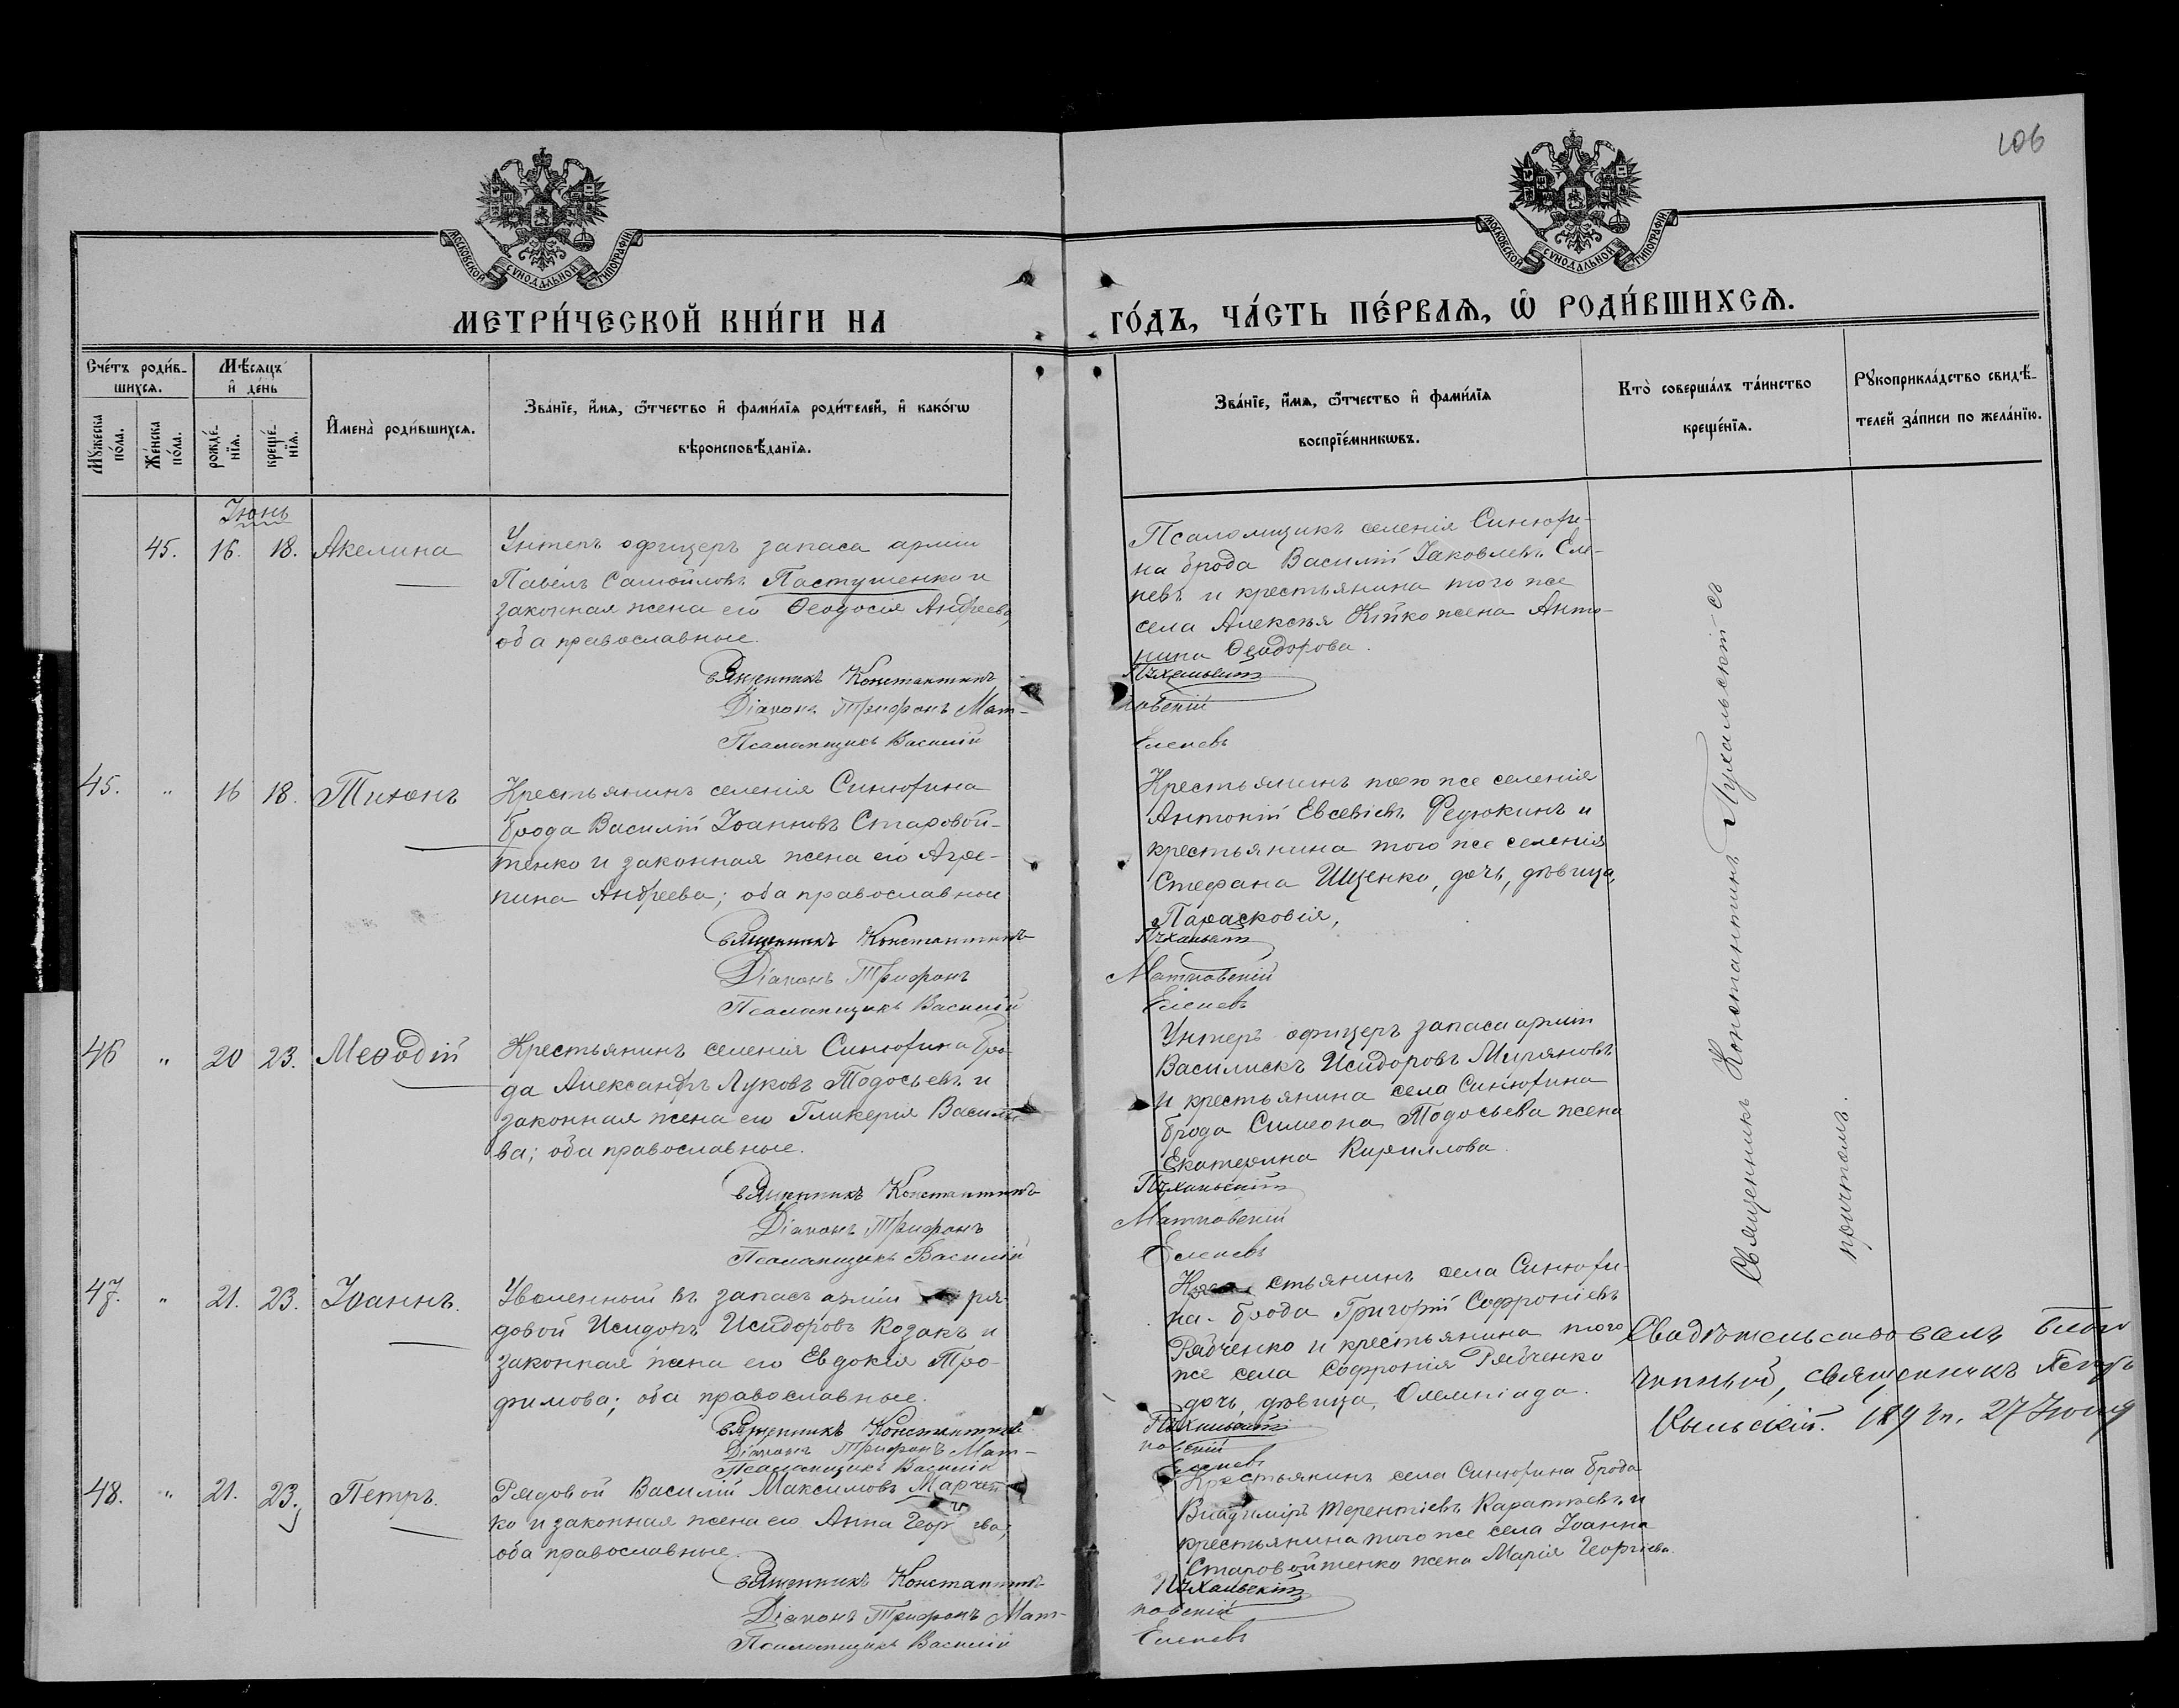 106
МОСКОВСКОЙ СѴНОДАЛЬНОЙ ТИПОГРАФІИ
МОСКОВСКОЙ СѴНОДАЛЬНОЙ ТИПОГРАФІИ
МЕТРИ́ЧЕСКОЙ КНИ́ГИ НА
ГО́ДЪ, ЧА́СТЬ ПЕ́РВАѦ, Ѡ҆ РОДИ́ВШИХСѦ.
Сче́тъ роди́в-
шихсѧ.
Мꙋ́жеска по́ла.
Же́нска по́ла.
Мѣ́сѧцъ
и҆ де́нь
рожде́-
нїѧ.
креще́-
нїѧ.
И҆мена̀ роди́вшихсѧ.
Зва́нїе, и҆́мѧ, ѻ҆́тчество и҆ фами́лїѧ роди́телей, и҆ како́гѡ
вѣроисповѣ́данїѧ.
Зва́нїе, и҆́мѧ, ѻ҆́тчество и҆ фами́лїѧ
воспрїе́мникѡвъ.
Кто̀ соверша́лъ та́инство
креще́нїѧ.
Рꙋкоприкла́дство свидѣ́-
телей за́писи по жела́нїю.
Іюнь
45. 16. 18. Акелина
Унтеръ офицеръ запаса арміи
Павелъ Самойловъ Пастушенко и
законная жена его Ѳеодосія Андреева,
оба православные.
Священникъ Константинъ
Діаконъ Трифонъ Мат-
Псаломщикъ Василій
Псаломщикъ селенія Синюхи-
на брода Василій Іаковлевъ Еле-
невъ и крестьянина того же
села Алексѣя Кійко жена Анто-
нина Ѳеодорова.
Пухальскій
ковскій
Еленевъ
45. " 16 18. Тихонъ
Крестьянинъ селенія Синюхина
брода Василій Іоанновъ Старовой-
тенко и законная жена его Агре-
пина Андреева; оба православные
Священникъ Константинъ
Діаконъ Трифонъ
Псаломщикъ Василій
Крестьянинъ того же селенія
Антоній Евсевіевъ Редюкинъ и
крестьянина того же селенія
Стефана Ищенко, дочь, дѣвица,
Парасковія,
Пухальскій
Матковскій
Еленевъ
46 " 20 23. Меѳодій
Крестьянинъ селенія Синюхина бро-
да Александръ Луковъ Тодосьевъ и
законная жена его Гликерія Василье-
ва; оба православные.
Священникъ Константинъ
Діаконъ Трифонъ
Псаломщикъ Василій
Унтеръ офицеръ запаса арміи
Василискъ Исидоровъ
и крестьянина села Синюхина
брода Симеона Тодосьева жена
Екатерина Кириллова.
Пухальскій
Матковскій
Еленевъ
47. " 21. 23. Іоаннъ.
Уволенный въ запасъ арміи ря-
довой Исидоръ Исидоровъ Козакъ и
законная жена его Евдокія Тро-
фимова; оба православные.
Священникъ Константинъ
Діаконъ Трифонъ Мат-
Псаломщикъ Василій
Крестьянинъ села Синюхи-
на брода Григорій Софроніевъ
Рябченко и крестьянина того
же села Софронія Рябченко
дочь, дѣвица, Олемпіада.
Пухальскій
ковскій
Еленевъ
48. " 21. 23. Петръ.
Рядовой Василій Максимовъ Марчен-
ко и законная жена его Анна Георгіева;
оба православные.
Священникъ Константинъ
Діаконъ Трифонъ Мат-
Псаломщикъ Василій
Крестьянинъ села Синюхина брода
Владиміръ Терентіевъ Каратѣевъ и
крестьянина того же села Іоанна
Старовойтенко жена Марія Георгіева.
Пухальскій
ковскій
Еленевъ
Священникъ Константинъ Пухальскій съ
причтомъ.
Свидѣтельствовалъ благо
чинный, священникъ Петръ
27 Іюня